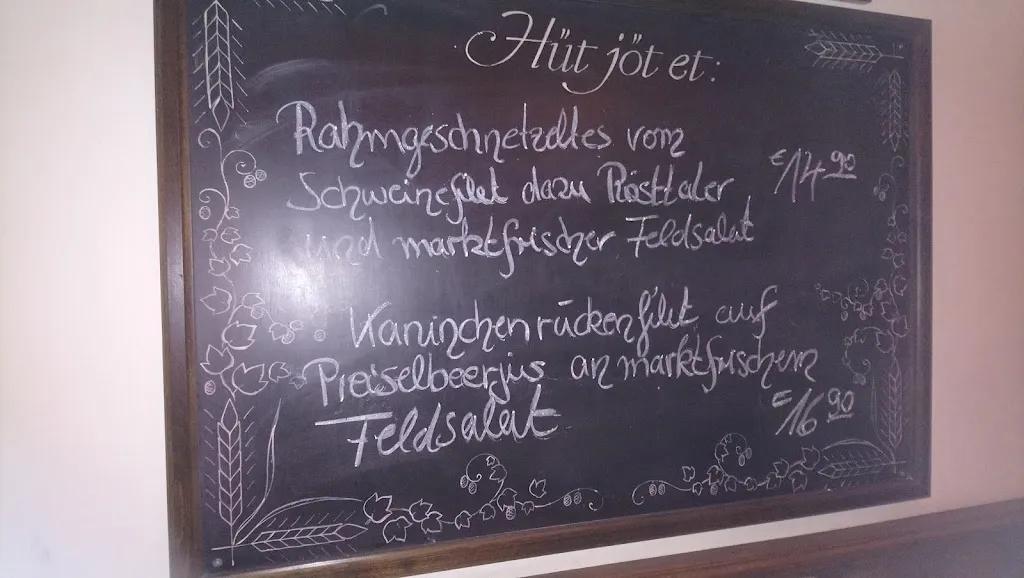 Hüt jöt et:
Rahmgeschnetzeltes vom
Schweinefilet dazu Rösttaler
und marktfrischer Feldsalat
€14.90
Kaninchenrückenfilet auf
Preiselbeerjus an marktfrischem
Feldsalat
€16.90